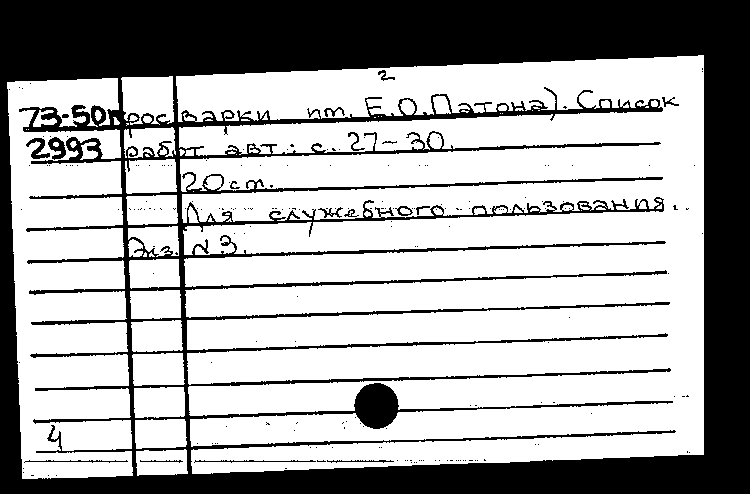 2
73-50п росварки им. Е.О.Патона). Список
2993 работ авт.: с. 27-30.
20см.
Для служебного пользования.
Экз. №3.
4